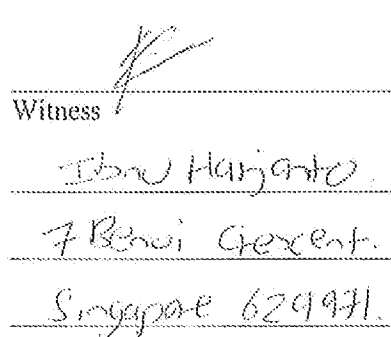 Witness
Ibnu Harjanto.
7 Benoi Crescent.
Singapore 629971.